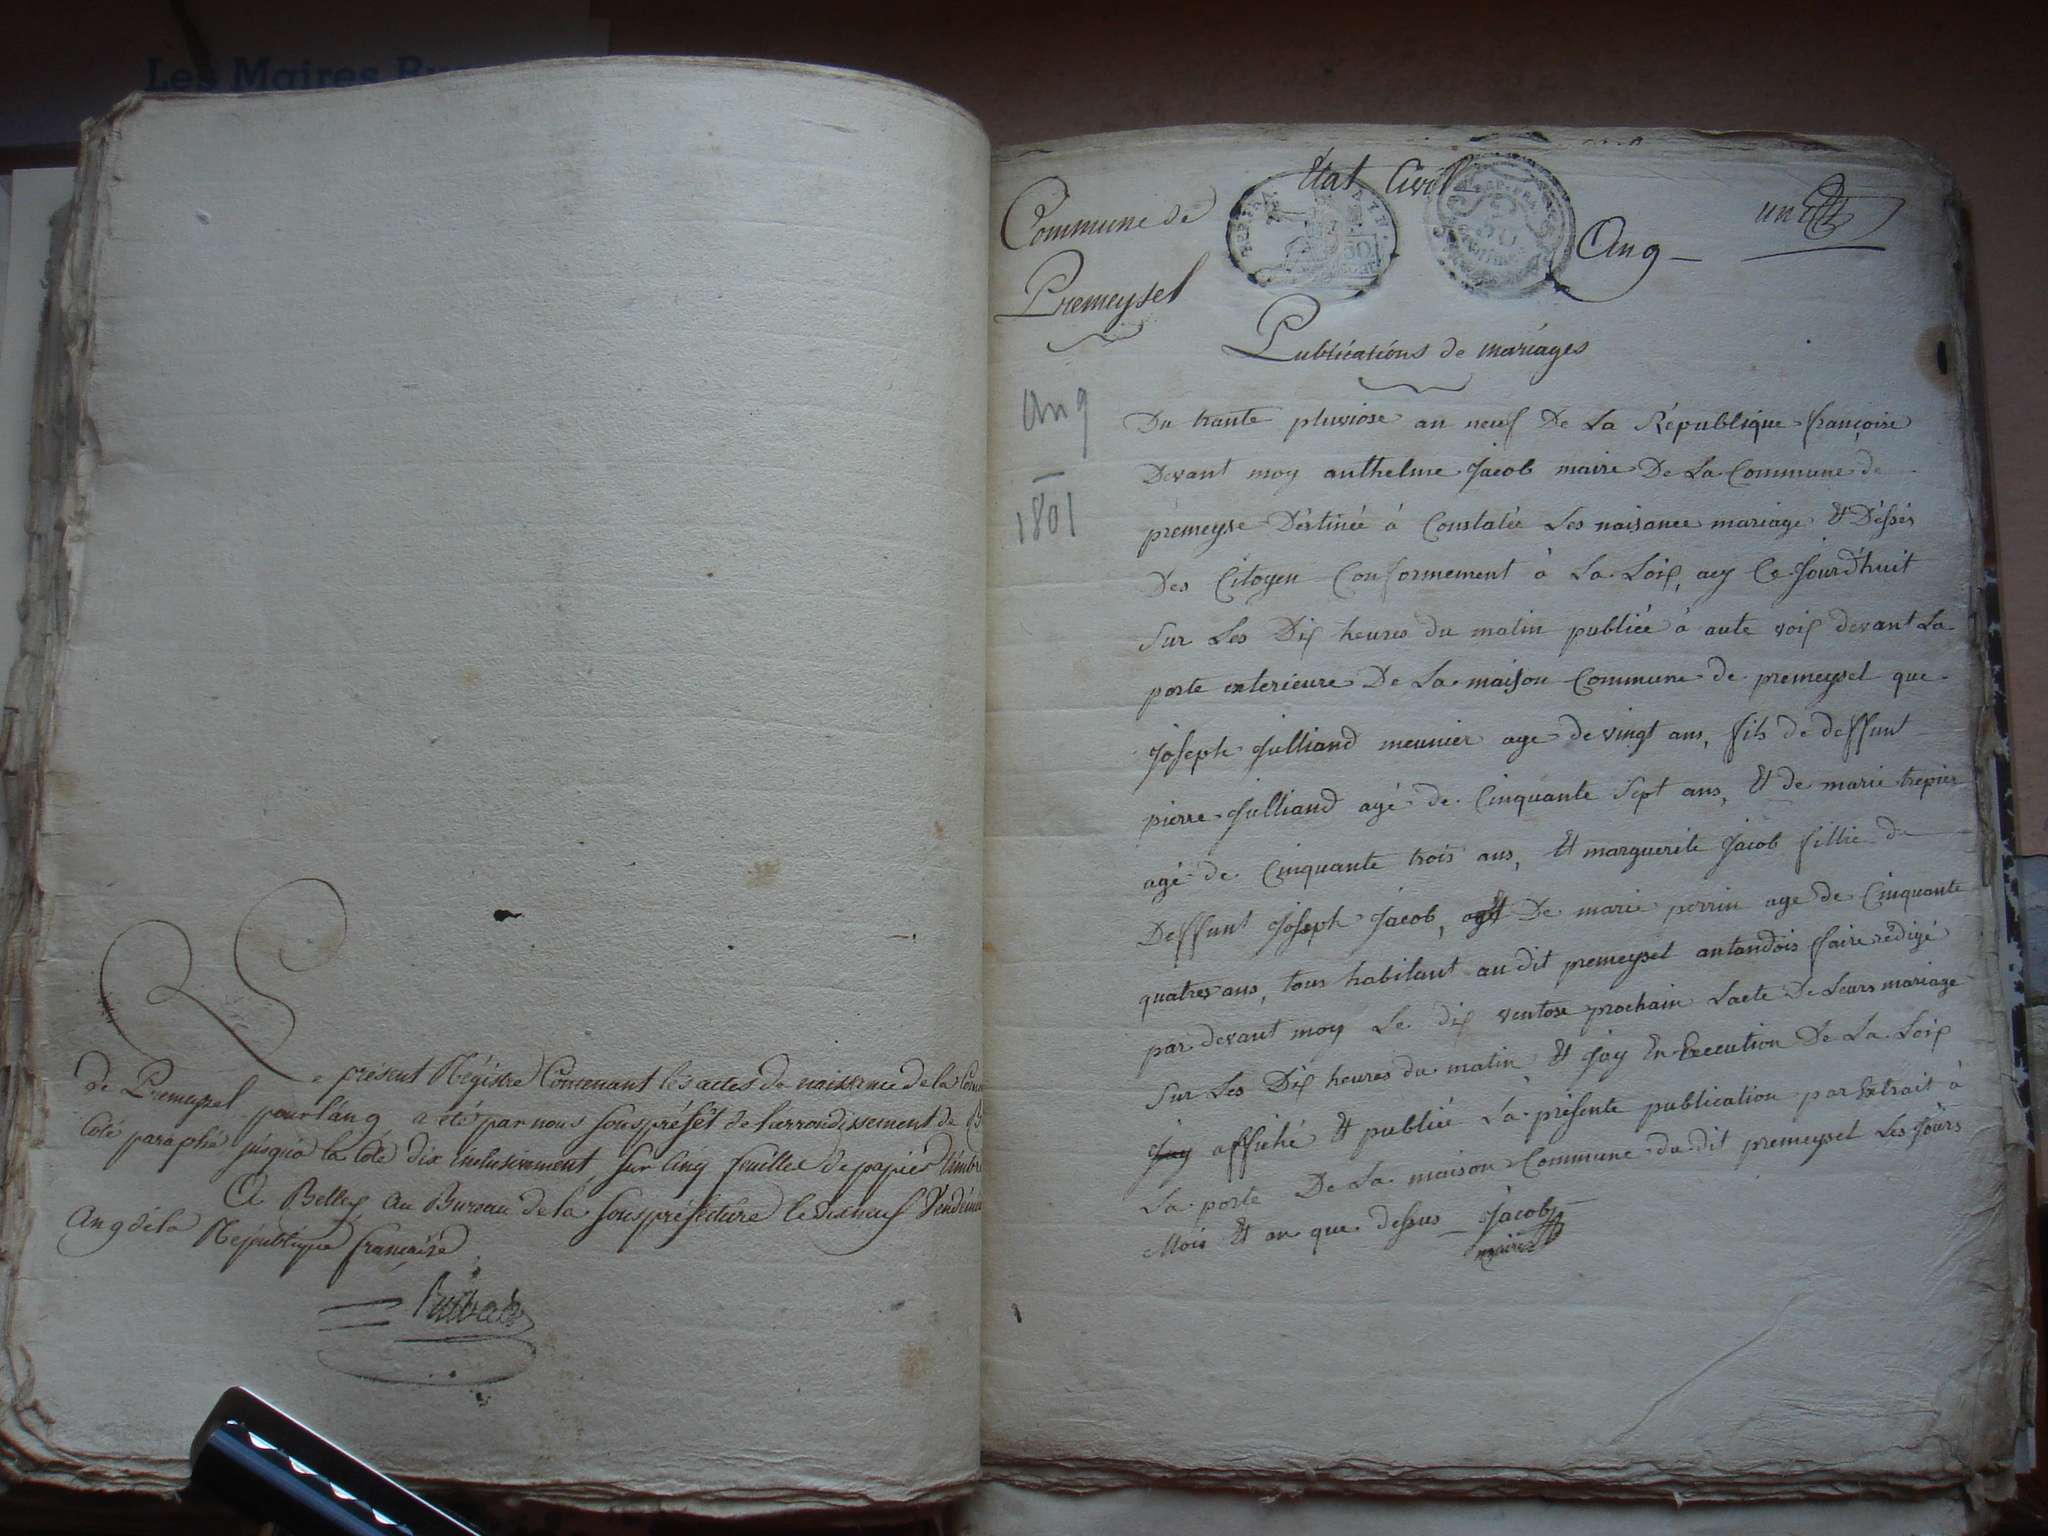 Les Maires Ru
Le présent Régistre Contenant les actes de naissance de la Com
de Premeyzel pour l'an 9 a été par nous Souspréfêt de l'arrondissement de B
Coté paraphé jusqua la Cote dix inclusivement sur Cinq feuilles de papier timbr
A Belley au Bureau de la Souspréfecture le dixneuf Vendémi
An 9 de la République française
État Civil
Commune de
Premeysel
An 9
un
Publications de mariages
An 9
1801
Du trante pluviose an neuf De La République françoise
Devant moy anthelme Jacob maire De La Commune de
premeyse Déstinée à Constatée Les naisance mariage Et Déssés
Des Citoyen Conformement à La Loix, aey Ce Jourd'huit
Sur Les Dix heures du matin publiée à aute voix devant La
porte exterieure De La maison Commune de premeysel que
Joseph Julliand meunier age de vingt ans, fils de deffunt
pierre Julliand agé de Cinquante Sept ans, Et de marie trepier
agé de Cinquante trois ans, Et marguerite Jacob fillie de
Deffunt Joseph Jacob, De marie perrin age de Cinquante
quatres ans, tous habitant au dit premeysel antandois faire rédigé
par devant moy Le dix ventose prochain Lacte De Leurs mariage
Sur Les Dix heures du matin, Et Jay En Execution De La Loix
Jay affiché Et publiée La présente publication par Extrait à
La porte De La maison Commune du dit premeysel Les Jours
Mois Et an que dessus Jacob
maire